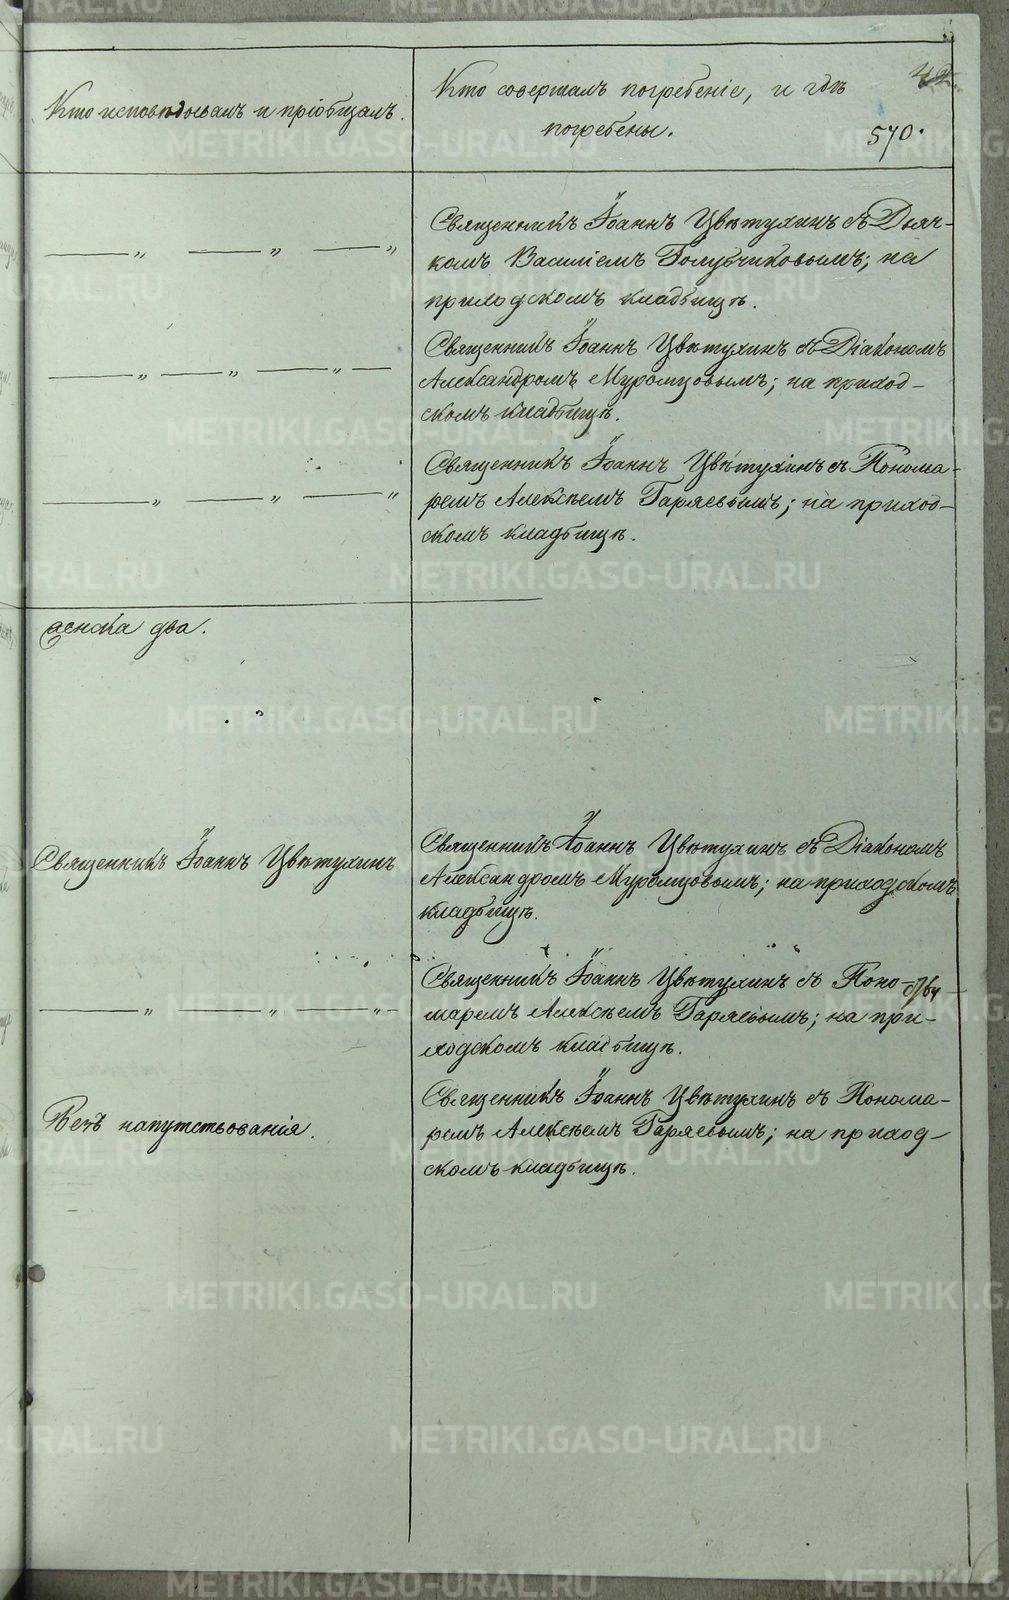 42
Кто исповѣдывалъ и пріобщалъ.
Кто совершалъ погребеніе, и гдѣ
погребены.
570.
Священникъ Іоаннъ Цвѣтухинъ съ Дьяч-
комъ Василіемъ Голубчиковымъ; на
приходскомъ кладбищѣ.
Священникъ Іоаннъ Цвѣтухинъ съ Діакономъ
Александромъ Муромцовымъ; на приход-
скомъ кладбищѣ.
Священникъ Іоаннъ Цвѣтухинъ съ Понома-
ремъ Алексѣемъ Гаряевымъ; на приход-
скомъ кладбищѣ.
женска два.
Священникъ Іоаннъ Цвѣтухинъ
Священникъ Іоаннъ Цвѣтухинъ съ Діакономъ
Александромъ Муромцовымъ; на приходскомъ
кладбищѣ.
Священникъ Іоаннъ Цвѣтухинъ съ Поно-
маремъ Алексѣемъ Гаряевымъ; на при-
ходскомъ кладбищѣ.
Безъ напутствованія.
Священникъ Іоаннъ Цвѣтухинъ съ Понома-
ремъ Алексѣемъ Гаряевымъ; на приход-
скомъ кладбищѣ.
METRIKI.GASO-URAL.RU